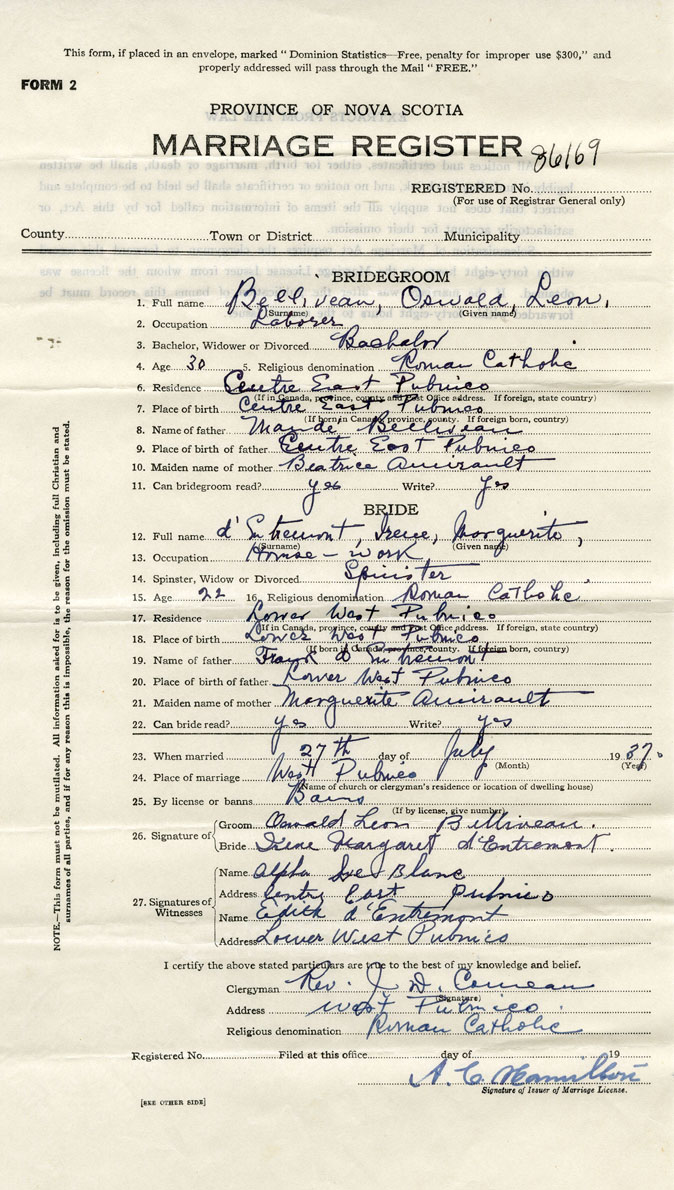 This form, if placed in an envelope, marked "Dominion Statistics—Free, penalty for improper use $300," and
properly addressed will pass through the Mail "FREE."
FORM 2
PROVINCE OF NOVA SCOTIA
MARRIAGE REGISTER
86169
REGISTERED No.
(For use of Registrar General only)
County Town or District Municipality
BRIDEGROOM
1. Full name Belliveau, Oswald, Leon,
(Surname) (Given name)
2. Occupation Laborer
3. Bachelor, Widower or Divorced Bachelor
4. Age 30 5. Religious denomination Roman Catholic
6. Residence Centre East Pubnico
(If in Canada, province, county and Post Office address. If foreign, state country)
7. Place of birth Centre East Pubnico
(If born in Canada, province, county. If foreign born, country)
8. Name of father Mande Belliveau
9. Place of birth of father Centre East Pubnico
10. Maiden name of mother Beatrice Amirault
11. Can bridegroom read? yes Write? yes
BRIDE
12. Full name d'Entremont, Irene, Marguerite,
(Surname) (Given name)
13. Occupation House-work
14. Spinster, Widow or Divorced Spinster
15. Age 22 16. Religious denomination Roman Catholic
17. Residence Lower West Pubnico
(If in Canada, province, county and Post Office address. If foreign, state country)
18. Place of birth Lower West Pubnico
(If born in Canada, province, county. If foreign born, country)
19. Name of father Frank D'Entremont
20. Place of birth of father Lower West Pubnico
21. Maiden name of mother Marguerite Amirault
22. Can bride read? yes Write? yes
23. When married 27th day of July 1937.
(Month) (Year)
24. Place of marriage West Pubnico
(Name of church or clergyman's residence or location of dwelling house)
25. By license or banns Bans
(If by license, give number)
26. Signature of Groom Oswald Leon Belliveau.
Bride Irene Margaret d'Entremont.
27. Signatures of Witnesses Name Alpha Le Blanc
Address Centre East Pubnico
Name Edith d'Entremont
Address Lower West Pubnico
I certify the above stated particulars are true to the best of my knowledge and belief.
Clergyman Rev. J. D. Comeau
(Signature)
Address West Pubnico.
Religious denomination Roman Catholic
Registered No. Filed at this office day of 19
A. C. Hamilton
Signature of Issuer of Marriage License.
[SEE OTHER SIDE]
NOTE.—This form must not be mutilated. All information asked for is to be given, including full Christian and
surnames of all parties, and if for any reason this is impossible, the reason for the omission must be stated.